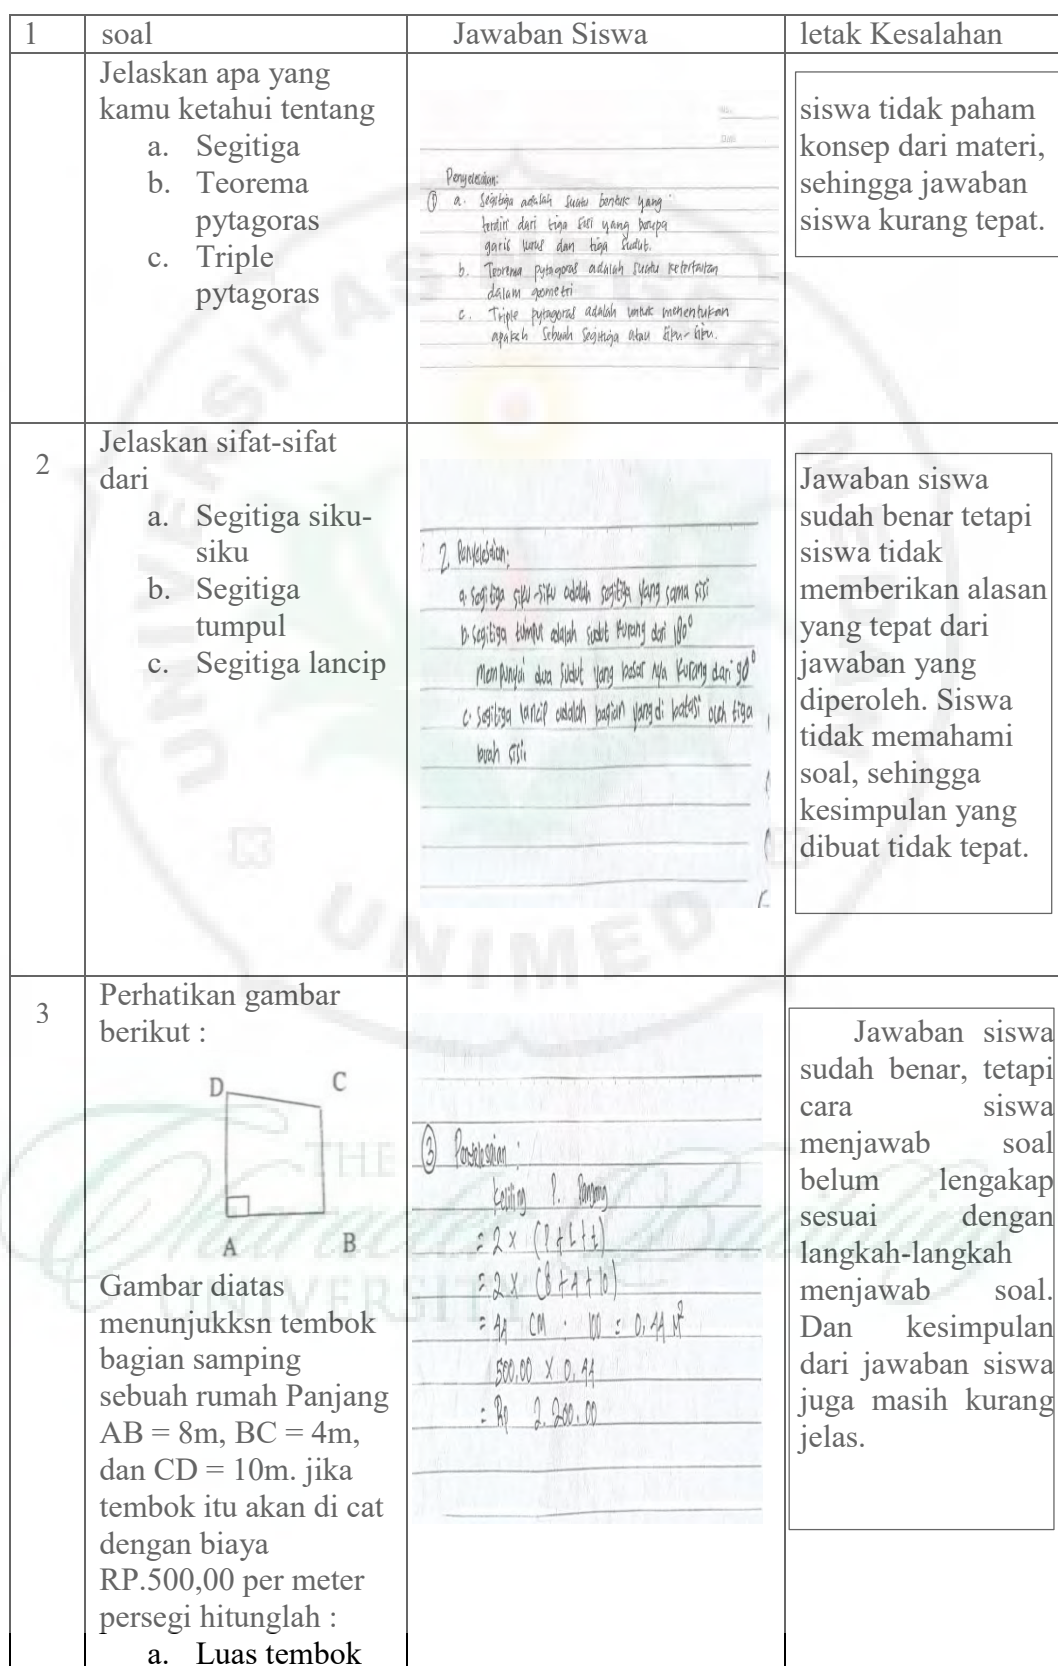 1 soal Jawaban Siswa letak Kesalahan
Jelaskan apa yang
kamu ketahui tentang
a. Segitiga
b. Teorema
pytagoras
c. Triple
pytagoras
Penyelesaian:
① a. Segitiga adalah suatu bentuk yang
terdiri dari tiga sisi yang berupa
garis lurus dan tiga sudut.
b. Teorema pytagoras adalah suatu keterkaitan
dalam geometri
c. Triple pytagoras adalah untuk menentukan
apakah sebuah segitiga atau siku-siku.
siswa tidak paham
konsep dari materi,
sehingga jawaban
siswa kurang tepat.
2
Jelaskan sifat-sifat
dari
a. Segitiga siku-
siku
b. Segitiga
tumpul
c. Segitiga lancip
2 Penyelesaian:
a. segitiga siku-siku adalah segitiga yang sama sisi
b. segitiga tumpul adalah sudut kurang dari 180°
mempunyai dua sudut yang besar nya kurang dari 90°
c. segitiga lancip adalah bagian yang di batasi oleh tiga
buah sisi
Jawaban siswa
sudah benar tetapi
siswa tidak
memberikan alasan
yang tepat dari
jawaban yang
diperoleh. Siswa
tidak memahami
soal, sehingga
kesimpulan yang
dibuat tidak tepat.
3
Perhatikan gambar
berikut :
D C
A B
Gambar diatas
menunjukksn tembok
bagian samping
sebuah rumah Panjang
AB = 8m, BC = 4m,
dan CD = 10m. jika
tembok itu akan di cat
dengan biaya
RP.500,00 per meter
persegi hitunglah :
a. Luas tembok
③ Penyelesaian :
= 2 × (P + L + t)
= 2 × (8 + 4 + 10)
= 44 CM : 100 = 0,44 M²
500,00 × 0,44
= Rp 2.200,00
Jawaban siswa
sudah benar, tetapi
cara siswa
menjawab soal
belum lengakap
sesuai dengan
langkah-langkah
menjawab soal.
Dan kesimpulan
dari jawaban siswa
juga masih kurang
jelas.
UNIVERSITAS NEGERI MEDAN
UNIMED
THE
Character Building
UNIVERSITY